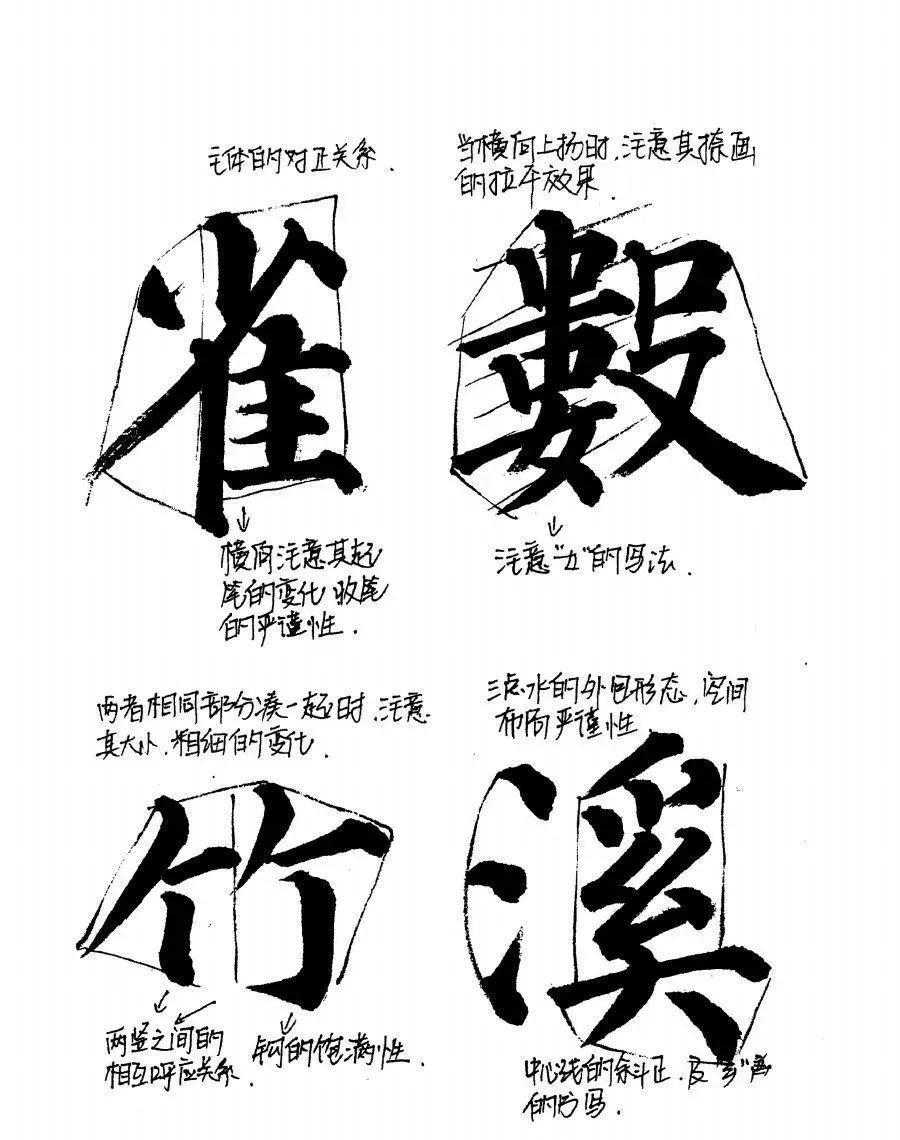 主体的对正关系.
当横向上扬时,注意其捺画
的拉平效果.
雀
數
横向注意其起
尾的变化,收尾
的严谨性.
注意"女"的写法.
两者相同部分凑一起时,注意
其大小,粗细的变化.
三点水的外包形态,空间
布局严谨性
竹
溪
两竖之间的
相互呼应关系.
钩的饱满性.
中心线的斜正.及
的写.